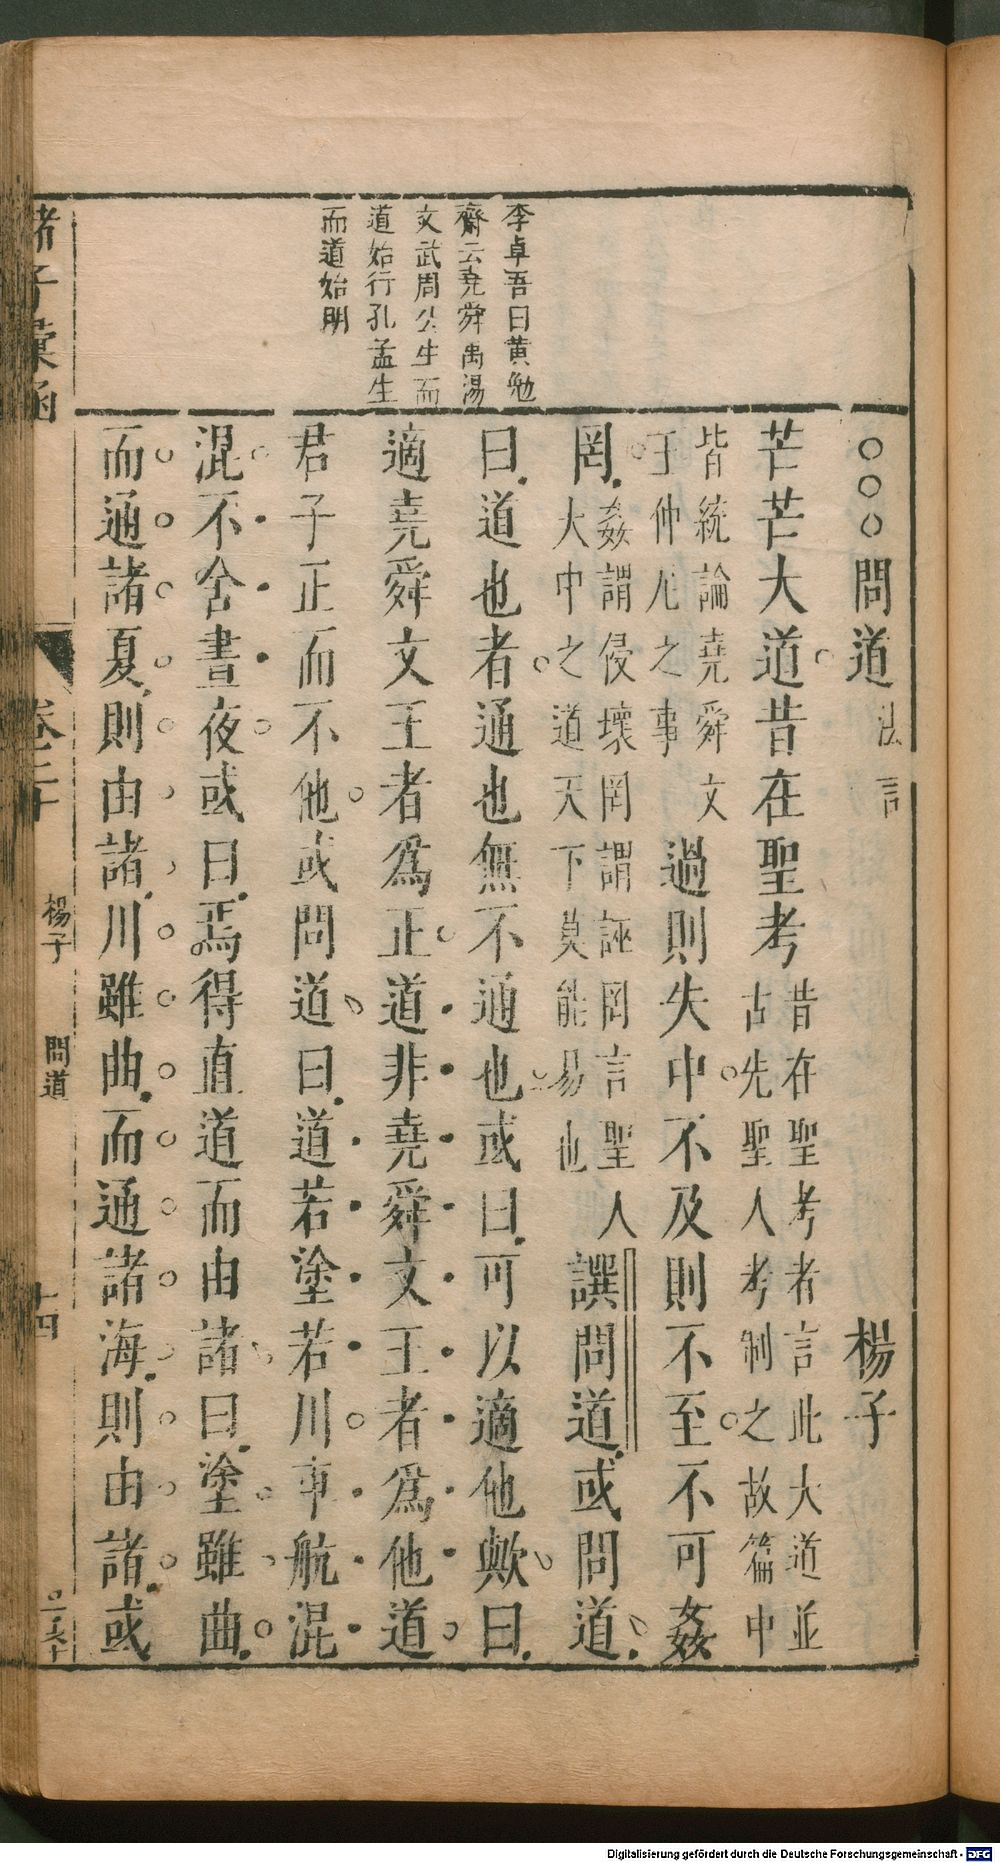 李卓吾曰黃勉
齋云堯舜禹湯
文武周公生而
道始行孔孟生
而道始明
○○○問道法言 楊子
芒芒大道昔在聖考昔在聖考者言此大道並
古先聖人考制之故篇中
皆統論堯舜文
王仲尼之事過則失中不及則不至不可姦
罔姦謂侵壞罔謂誣罔言聖人
大中之道天下莫能易也譔問道或問道
曰道也者通也無不通也或曰可以適他歟曰
適堯舜文王者為正道非堯舜文王者為他道
君子正而不他或問道曰道若塗若川車航混
混不舍晝夜或曰焉得直道而由諸曰塗雖曲
而通諸夏則由諸川雖曲而通諸海則由諸或
諸子彙函
卷二十
楊子
問道
十四
Digitalisierung gefördert durch die Deutsche Forschungsgemeinschaft - DFG